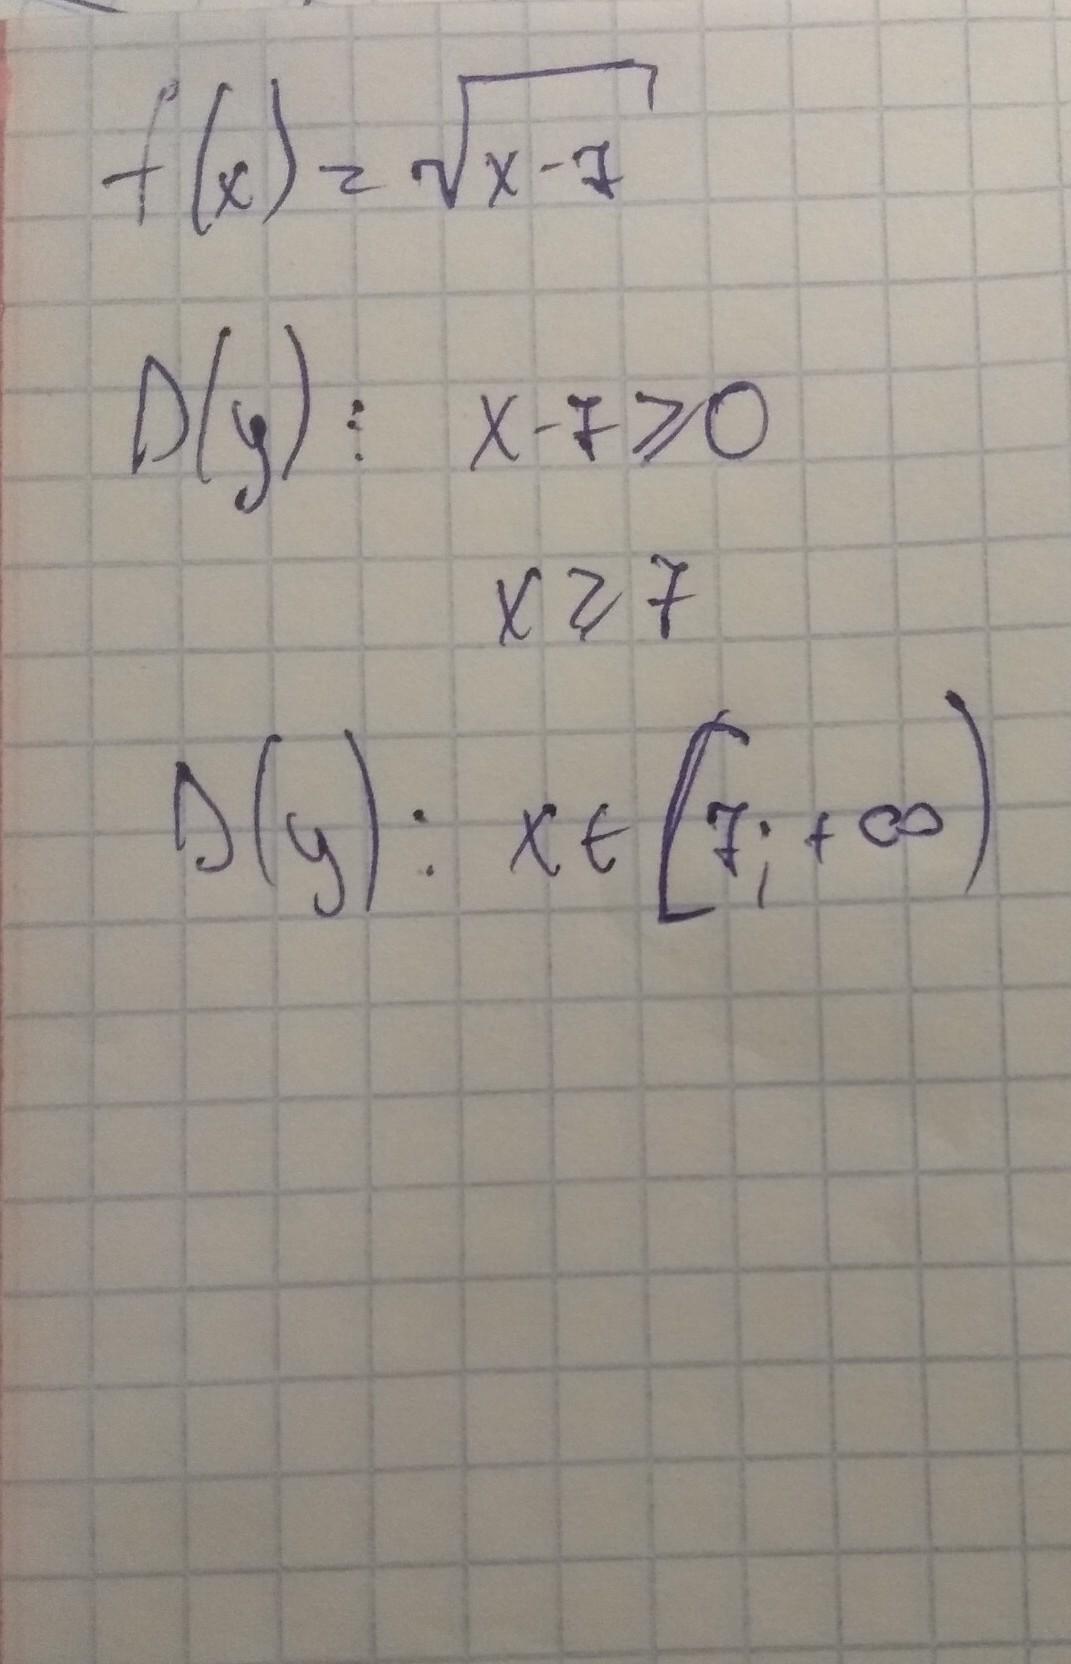 f(x) = √x-7
D(y): x-7⩾0
x⩾7
D(y): x∈[7;+∞)